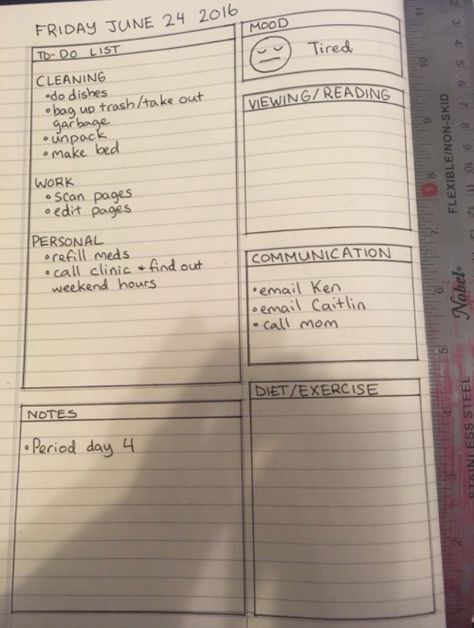 FRIDAY JUNE 24 2016
TO-DO LIST
CLEANING
• do dishes
• bag up trash/take out
garbage
• unpack
• make bed
WORK
• scan pages
• edit pages
PERSONAL
• refill meds
• call clinic + find out
weekend hours
NOTES
• Period day 4
MOOD
Tired
VIEWING/READING
COMMUNICATION
• email Ken
• email Caitlin
• call mom
DIET/EXERCISE
FLEXIBLE/NON-SKID
11
10
9
8
7
6
5
2